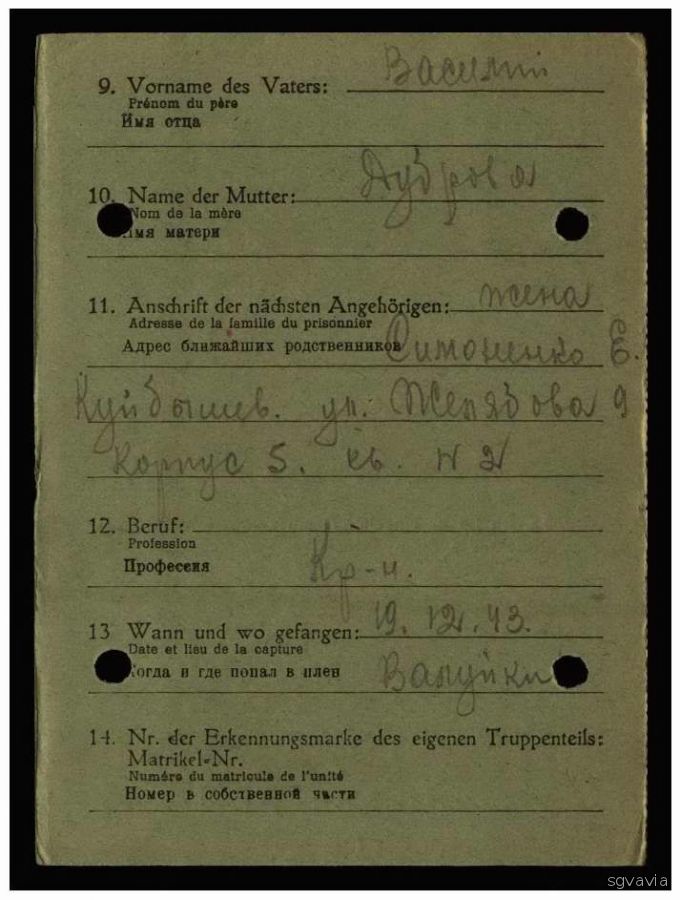 9. Vorname des Vaters: Василий
Prénom du père
Имя отца
10. Name der Mutter: Дуброва
Nom de la mère
Имя матери
11. Anschrift der nächsten Angehörigen: жена
Adresse de la famille du prisonnier
Адрес ближайших родственников Симоненко Е.
Куйбышев. ул. Желябова 9
Корпус 5. кв. N 2
12. Beruf:
Profession
Профессия Кр-н.
13 Wann und wo gefangen: 19. 12. 43.
Date et lieu de la capture
Когда и где попал в плен Валуйки
14. Nr. der Erkennungsmarke des eigenen Truppenteils:
Matrikel-Nr.
Numéro du matricule de l'unité
Номер в собственной части
sgvavia